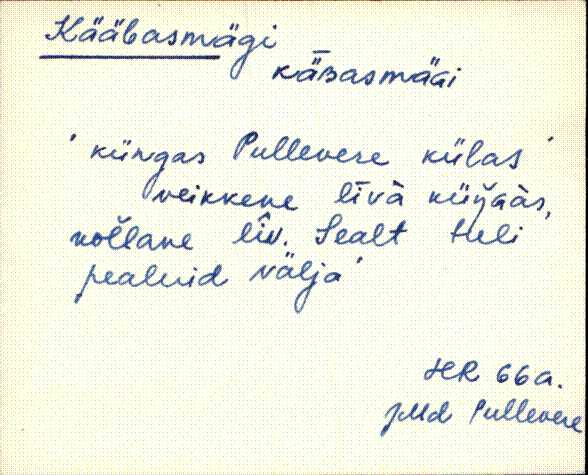 Kääbasmägi
kǟʙasmäɢi
' küngas Pullevere külas '
veikkene līvà küŋ̆ɢàs,
koĺ̆lane lîv. Sealt tuli
pealuid välja '
HR 66a.
JMd Pullevere